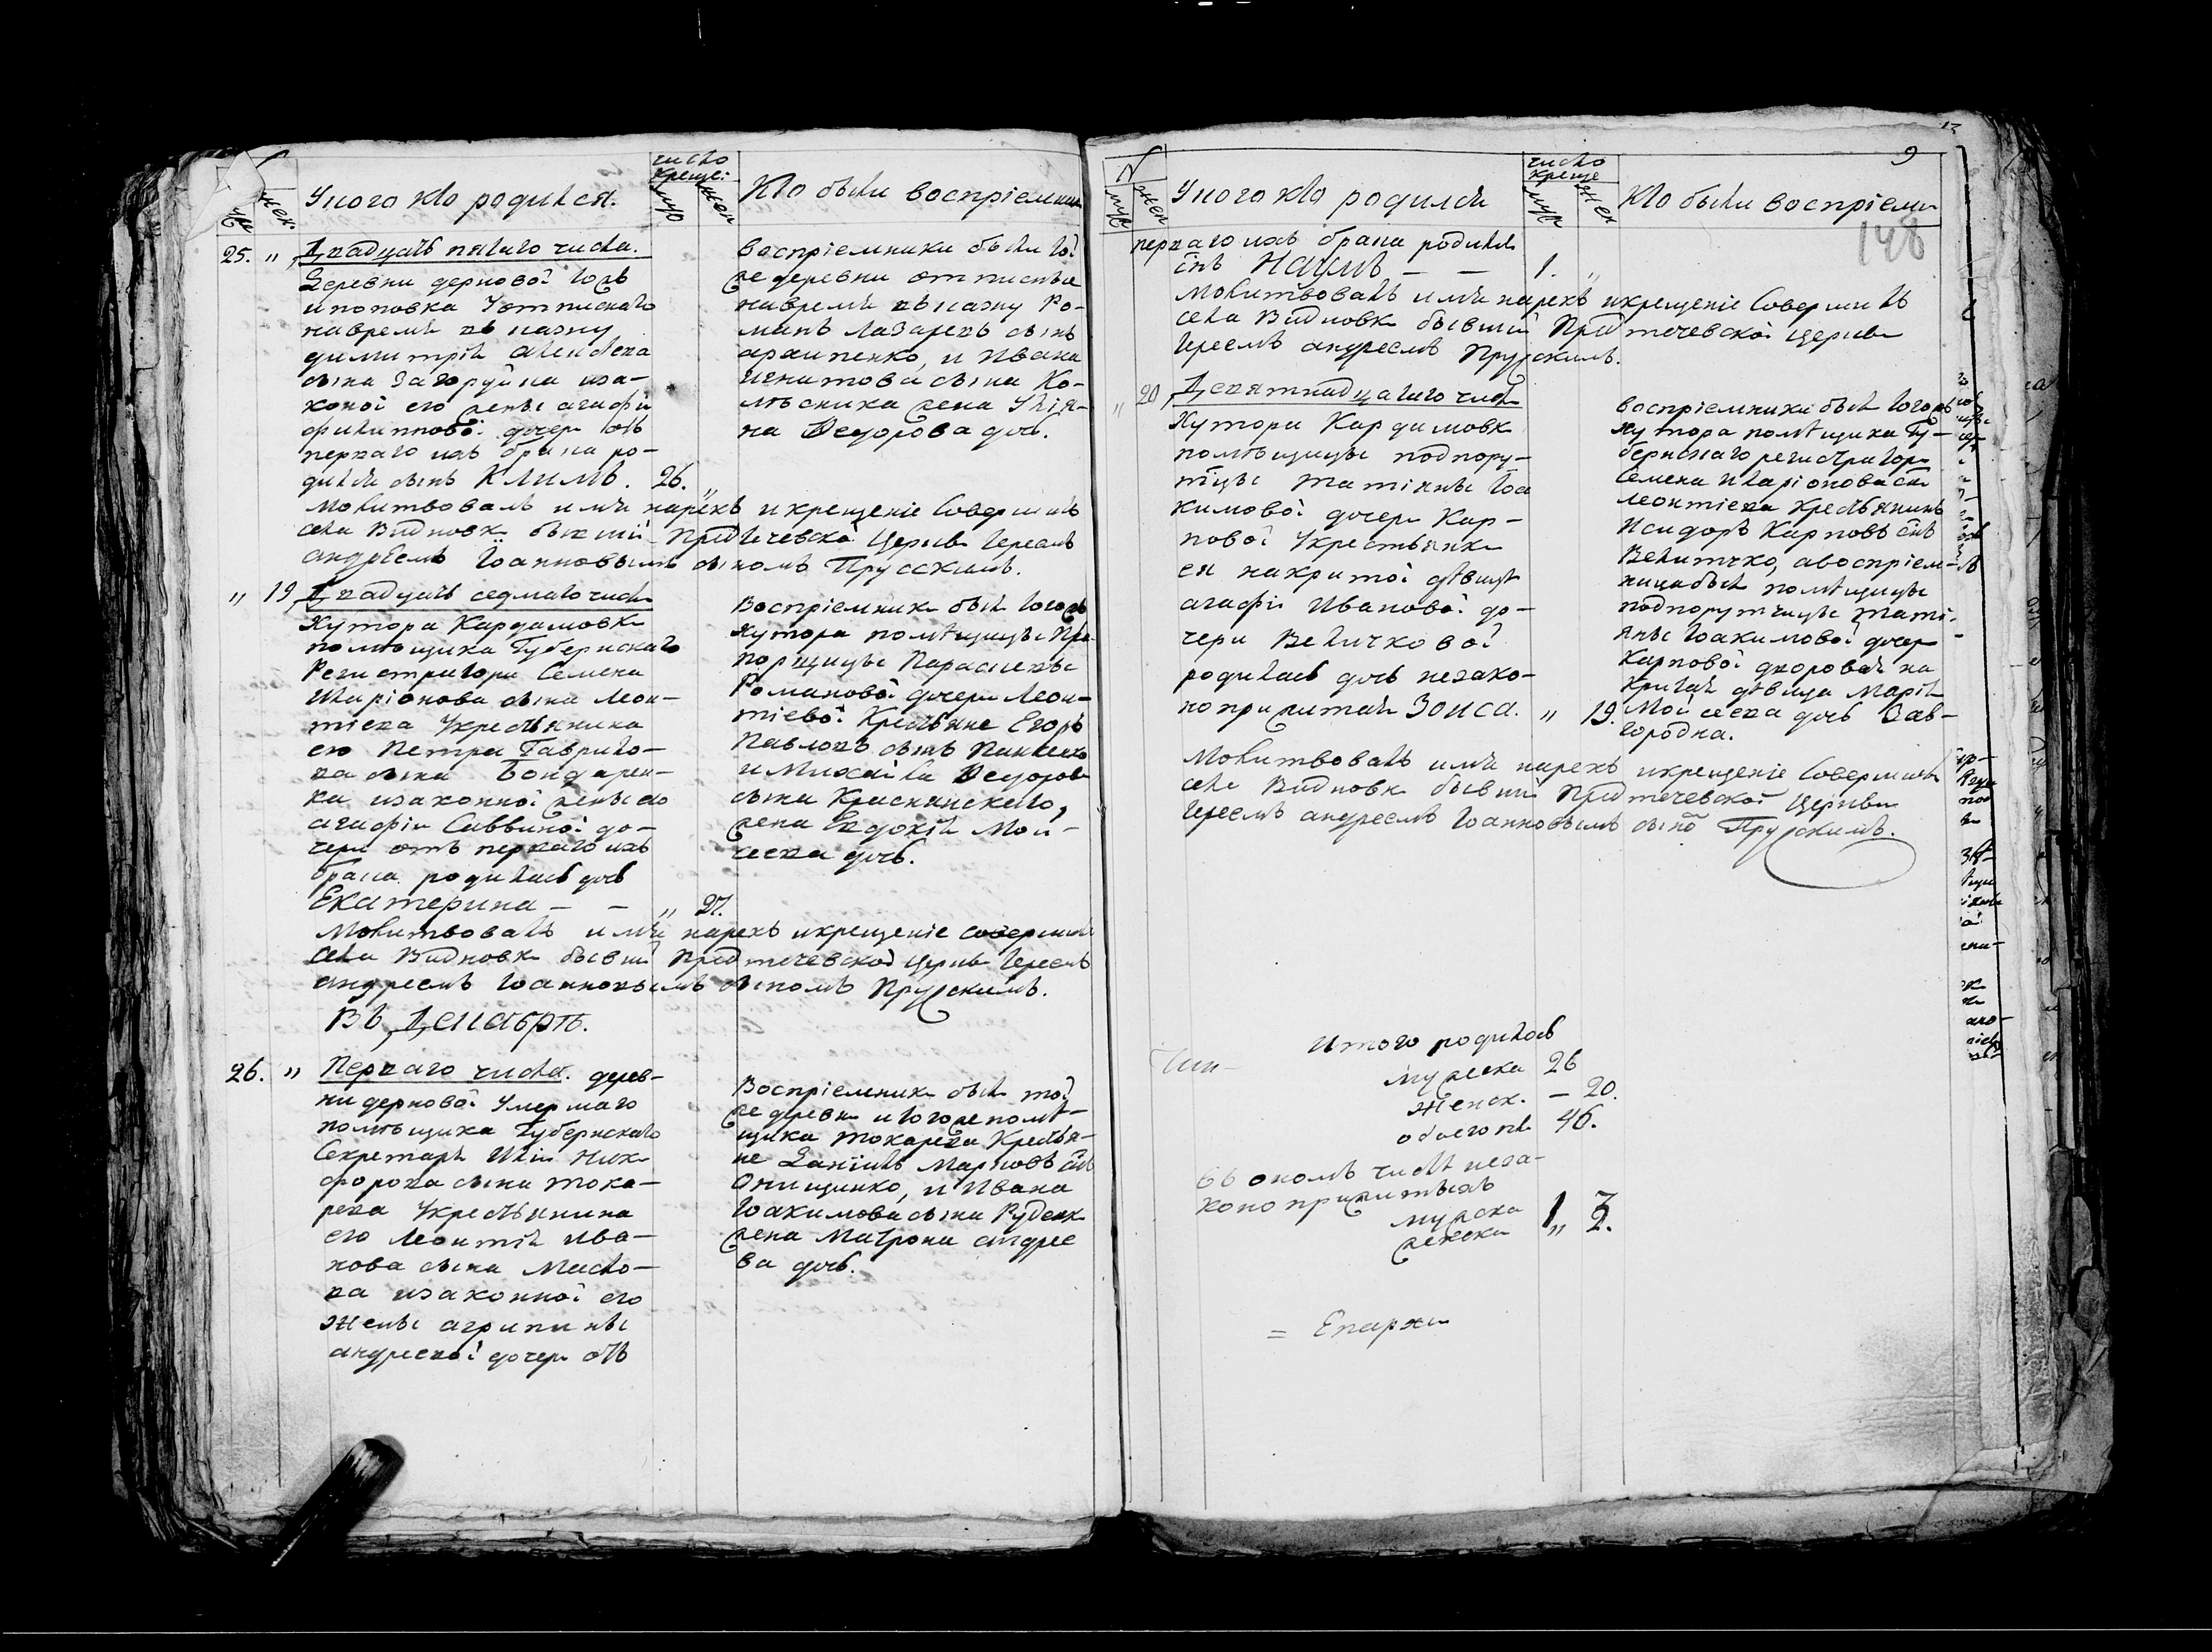 №
муж. жен.
У кого кто родился.
число крещe:
муж жен
Кто были воспріемник
25. „ Двадцать пятаго числа.
Деревни дерновой тожъ
и поповка Уотписнаго
на время въ казну
димитрія алексѣева
сына Загоруйка иза-
коной его жены агафіи
филипповой дочери отъ
перваго ихъ брака ро-
дился сынъ Климъ. 26. „
воспріемники были той
же деревни отписные
на время въ казну Ро-
манъ Лазаревъ сынъ
архипенко, и Ивана
игнатова сына Ко-
лѣсника жена Улія-
на Ѳедорова доч.
Молитвовалъ имя нарекъ и крещеніе Совершилъ
села Видновк бывшій Предтечевской Церкви Іереемъ
андреемъ Іоанновымъ сыномъ Прусскимъ.
„ 19 Двадцать седмаго числа
Хутора Кардамовки
помѣщика Губернскаго
Регистратора Семена
Иларіонова сына Леон-
тіева Укрестьянина
его Петра Гаврило-
ва сына Бондарен-
ка изаконной жены его
агафіи Саввиной до-
чери отъ перваго ихъ
брака родилась дочь
Екатерина – – „ 27.
Воспріемник был тогожъ
Хутора помѣщицы Пра-
порщицы Параскевы
Романовой дочери Леон-
тіевой Крестьяне Егоръ
Павловъ сынъ Панченко
и Михайла Ѳедоров
сына Краснянскаго,
жена Евдокія Мой-
сеева дочь.
Молитвовалъ имя нарекъ и крещеніе совершилъ
села Видновк бывшій Предтечевской Церкви Іереемъ
андреемъ Іоанновымъ сыномъ Прусскимъ.
Въ Декабрѣ.
26. „ Перваго числа. дерев-
ни дерновой Умершаго
помѣщика Губернскаго
Секретаря Иліи Ник-
форова сына тока-
рева Укрестьянина
его Леонтія Ива-
нова сына Масло-
ва изаконной его
жены агрипины
андреевой дочери отъ
Воспріемник был той
же деревн и тогоже помѣ-
щика токарева Крестья-
не Даніилъ Марковъ снъ
Онищенко, и Ивана
Іоакимова сына Руденк
жена Матрона андрее
ва дочь.
№ 9
муж жен
У кого кто родился
число креще
муж жен
Кто были воспріемн
148
перваго ихъ брака родился
снъ Наумъ – – 1. „
Молитвовалъ имя нарекъ и крещеніе Совершилъ
села Видновк бывшій Предтечевской Церкви
Іереемъ андреемъ Прусскимъ.
„ 20 Девятнадцатаго числ
Хутора Кардамовк
помѣщицы подпору-
тцы татіяны Іоа
кимовой дочери Кар-
повой Укрестьянки
ея накритой дѣвицы
агафіи Ивановой до-
чери Величковой
родилась дочь незако-
ноприжитая Зоиса. „ 19.
воспріемники был тогожъ
Хутора помѣщика Гу-
бернскаго регистратора
Семена Иларіонова сна
Леонтіева Крестьянинъ
Исидоръ Карповъ снъ
Величко, авоспріем-
ница был помѣщицы
подпорутчицы тати-
яны Іоакимовой дочер
Карповой дворовая на
критая дѣвица Марія
Мойсеева дочь Зав-
городна.
Молитвовалъ имя нарекъ и крещеніе Совершилъ
села Видновк бывшій Предтечевской Церкви
Іереемъ андреемъ Іоанновымъ сыно Прусскимъ.
Итого родилось
мужеска 26
Женск. – 20.
обоего пл 46.
въ ономъ числѣ неза-
коноприжитыхъ
мужска 1 3
женска „ 2.
= Епархи